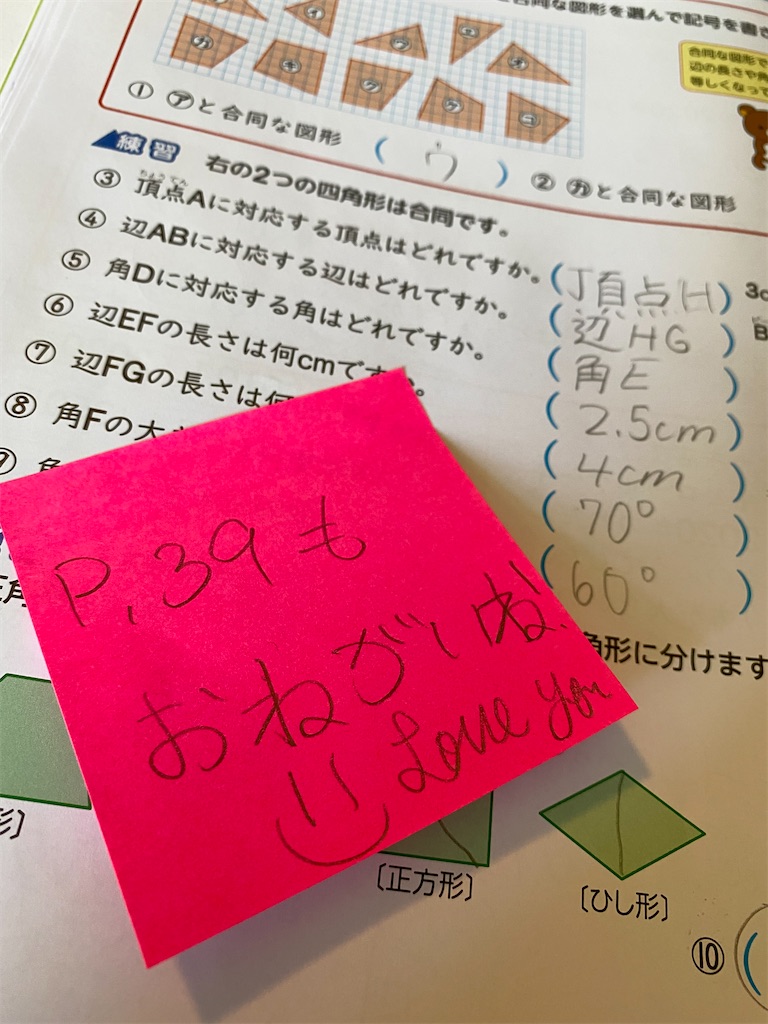 合同な図形を選んで記号を書き
イ
ウ
エ
オ
カ
キ
ク
ケ
コ
合同な図形で
辺の長さや角
等しくなって
① アと合同な図形 ( ウ ) ② カと合同な図形
練習 右の2つの四角形は合同です。
③ 頂点Aに対応する頂点はどれですか。 (頂点H)
④ 辺ABに対応する辺はどれですか。 (辺HG)
⑤ 角Dに対応する角はどれですか。 (角E)
⑥ 辺EFの長さは何cmですか。 (2.5cm)
⑦ 辺FGの長さは何 (4cm)
⑧ 角Fの大 (70°)
⑨ 角 (60°)
P.39も
おねがいね.
Love you
角形に分けます
形〕
〔正方形〕
〔ひし形〕
⑩ (